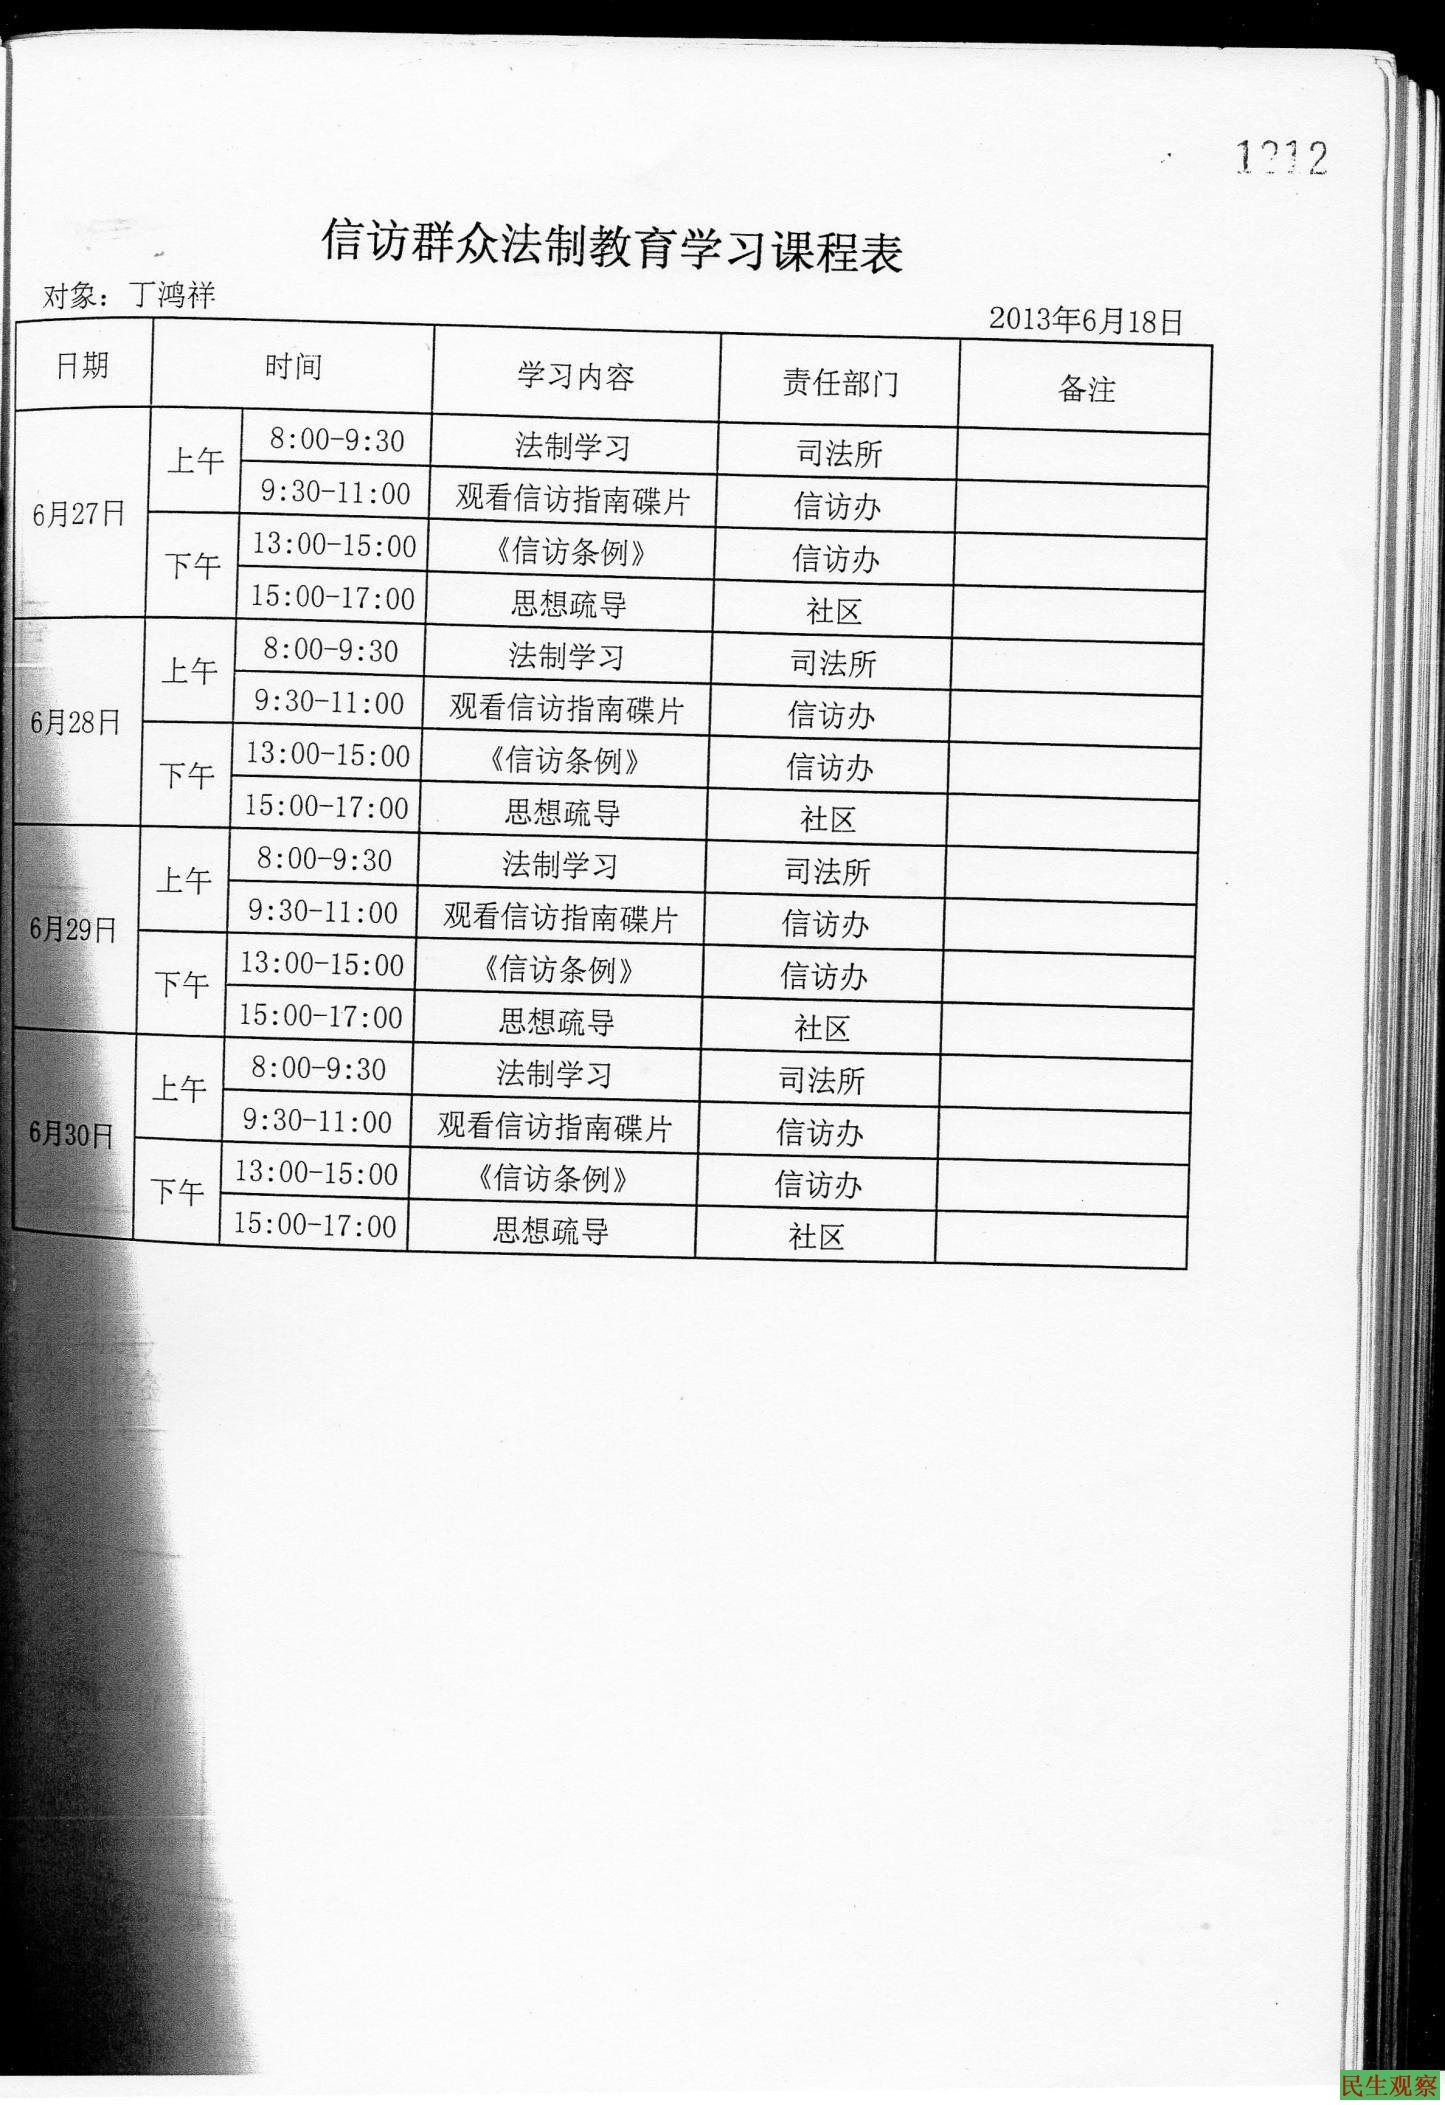 信访群众法制教育学习课程表
对象：丁鸿祥
2013年6月18日
日期 时间 学习内容 责任部门 备注
6月27日 上午 8:00-9:30 法制学习 司法所
9:30-11:00 观看信访指南碟片 信访办
下午 13:00-15:00 《信访条例》 信访办
15:00-17:00 思想疏导 社区
6月28日 上午 8:00-9:30 法制学习 司法所
9:30-11:00 观看信访指南碟片 信访办
下午 13:00-15:00 《信访条例》 信访办
15:00-17:00 思想疏导 社区
6月29日 上午 8:00-9:30 法制学习 司法所
9:30-11:00 观看信访指南碟片 信访办
下午 13:00-15:00 《信访条例》 信访办
15:00-17:00 思想疏导 社区
6月30日 上午 8:00-9:30 法制学习 司法所
9:30-11:00 观看信访指南碟片 信访办
下午 13:00-15:00 《信访条例》 信访办
15:00-17:00 思想疏导 社区
民生观察